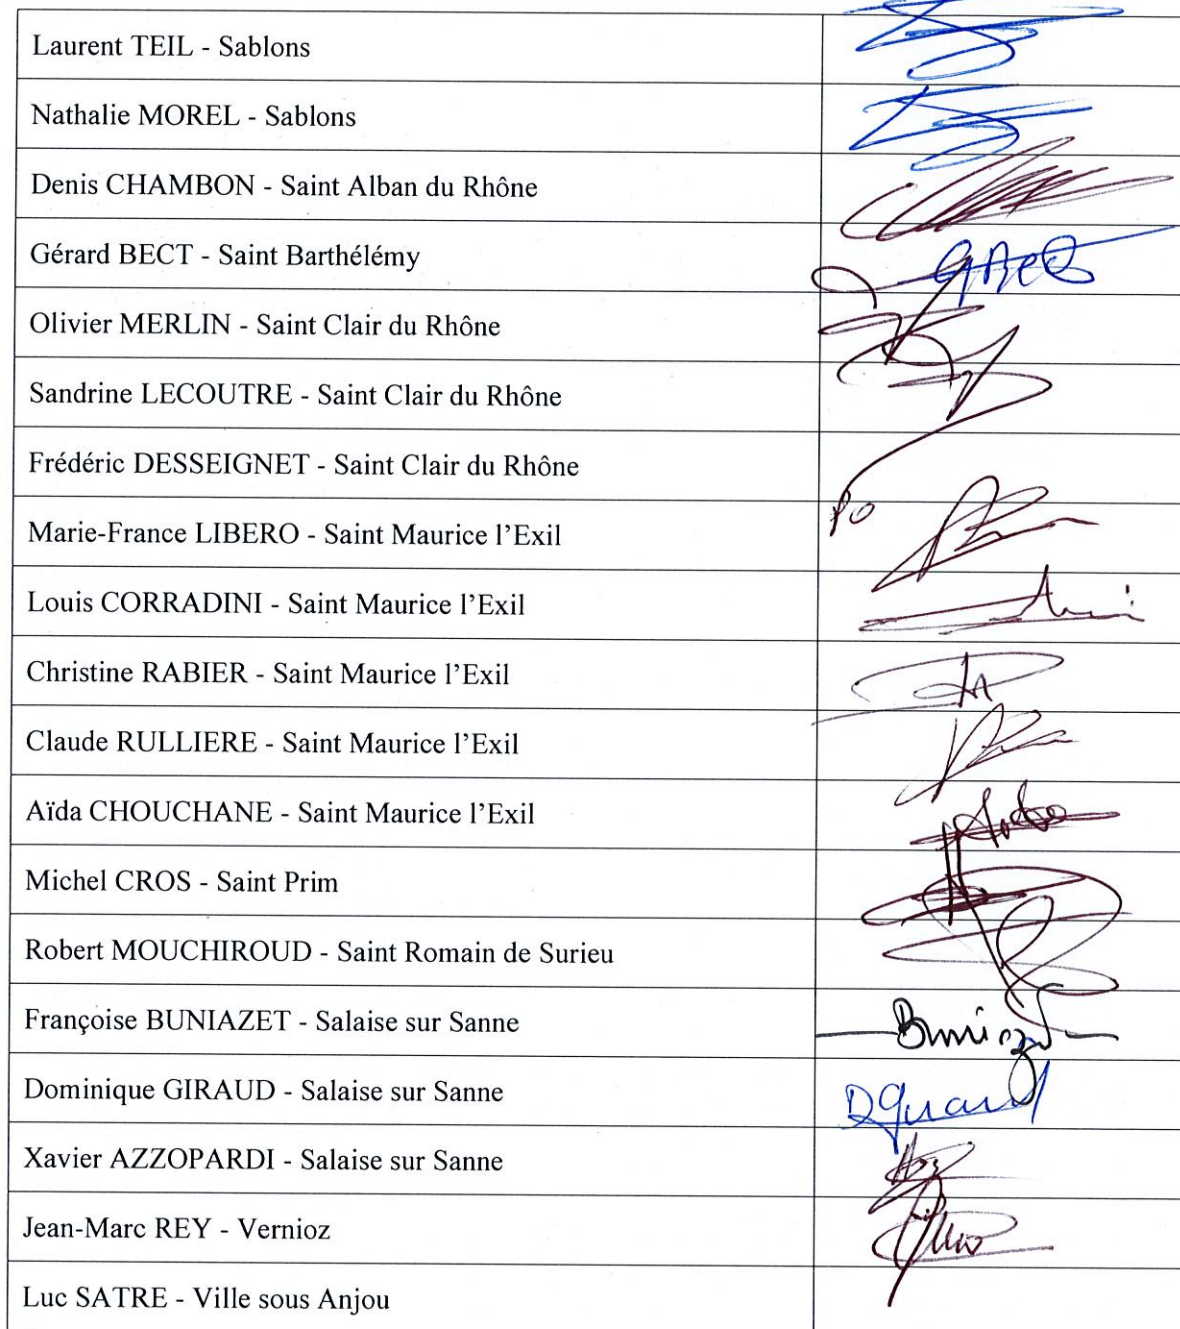 Laurent TEIL - Sablons
Nathalie MOREL - Sablons
Denis CHAMBON - Saint Alban du Rhône
Gérard BECT - Saint Barthélémy
Olivier MERLIN - Saint Clair du Rhône
Sandrine LECOUTRE - Saint Clair du Rhône
Frédéric DESSEIGNET - Saint Clair du Rhône
PO
Marie-France LIBERO - Saint Maurice l'Exil
Louis CORRADINI - Saint Maurice l'Exil
Christine RABIER - Saint Maurice l'Exil
Claude RULLIERE - Saint Maurice l'Exil
Aïda CHOUCHANE - Saint Maurice l'Exil
Michel CROS - Saint Prim
Robert MOUCHIROUD - Saint Romain de Surieu
Françoise BUNIAZET - Salaise sur Sanne
Dominique GIRAUD - Salaise sur Sanne
Xavier AZZOPARDI - Salaise sur Sanne
Jean-Marc REY - Vernioz
Luc SATRE - Ville sous Anjou